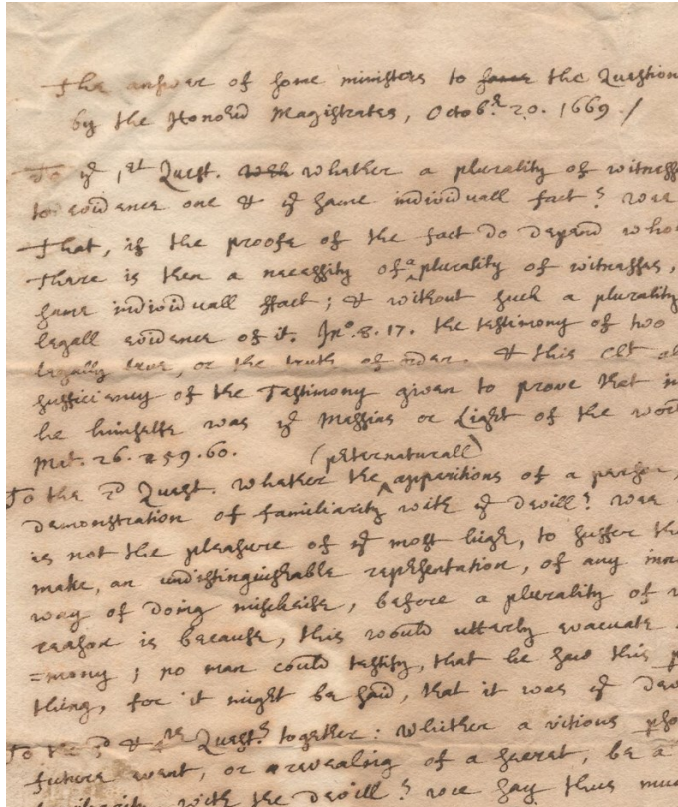 The answer of some ministers to the Question
by the Honord Magistrates, Octobr. 20. 1669 /
To ye 1st Quest. whether a plurality of witness
to evidence one & ye same individuall fact? wee
That, if the proofe of the fact do depend who
there is then a necessity of a plurality of witnesses,
same individuall ffact; & without such a plurality
legall evidence of it. Jno. 8. 17. the testimony of two
legally true, or the truth of order. & this
sufficiency of the Testimony given to prove that
he himselfe was ye Messias or Light of the wor
Mat. 26. 59. 60.
To the 2d Quest. whether the (preternaturall) apparitions of a person,
demonstration of familiarity with ye devill? wee
is not the pleasure of ye most high, to suffer the
make, an undistinguishable representation, of any inno
way of doing mischeife, before a plurality of w
reason is because, this would utterly evacuate
=mony; no man could testify, that he saw this p
thing, for it might be said, that it was ye Dev
To the 3d & 4th Quest.s together: whither a vitious pso
future event, or a revealing of a secret, be a
with the devill? wee say thus muc